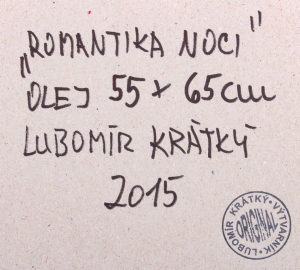 „ROMANTIKA NOCI"
OLEJ 55 x 65cm
LUBOMÍR KRÁTKÝ
2015
LUBOMÍR KRÁTKÝ • VÝTVARNÍK •
ORIGINAL